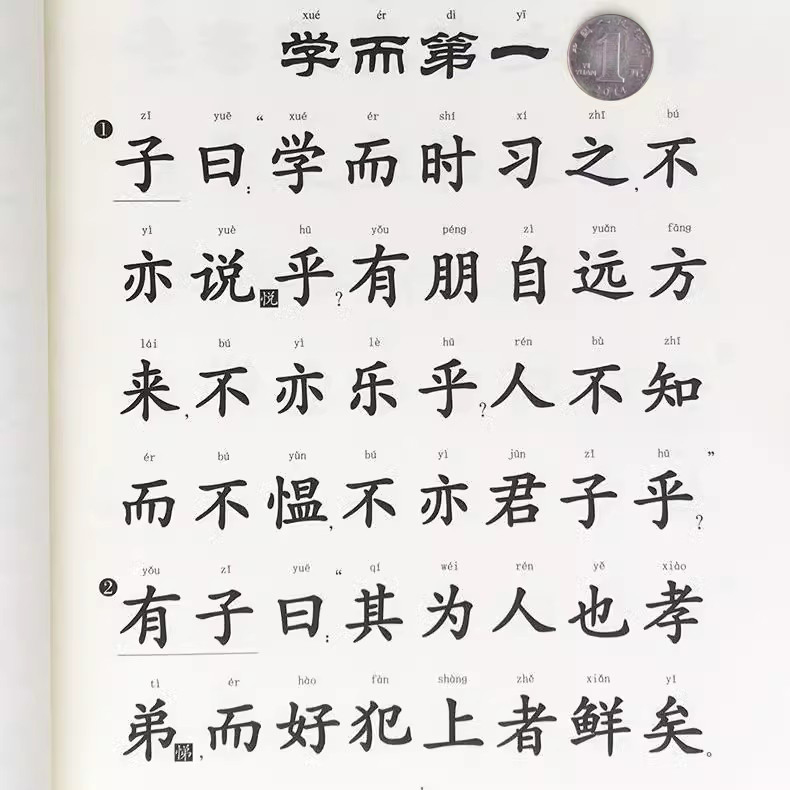 xué ér dì yī
学而第一
1
YI YUAN
zǐ yuē xué ér shí xí zhī bú
❶ 子曰：“学而时习之，不
yì yuè hū yǒu péng zì yuǎn fāng
亦说悦乎？有朋自远方
lái bú yì lè hū rén bù zhī
来，不亦乐乎？人不知
ér bú yùn bú yì jūn zǐ hū
而不愠，不亦君子乎？”
yǒu zǐ yuē qí wéi rén yě xiào
❷ 有子曰：“其为人也孝
tì ér hào fàn shàng zhě xiǎn yǐ
弟悌，而好犯上者鲜矣。